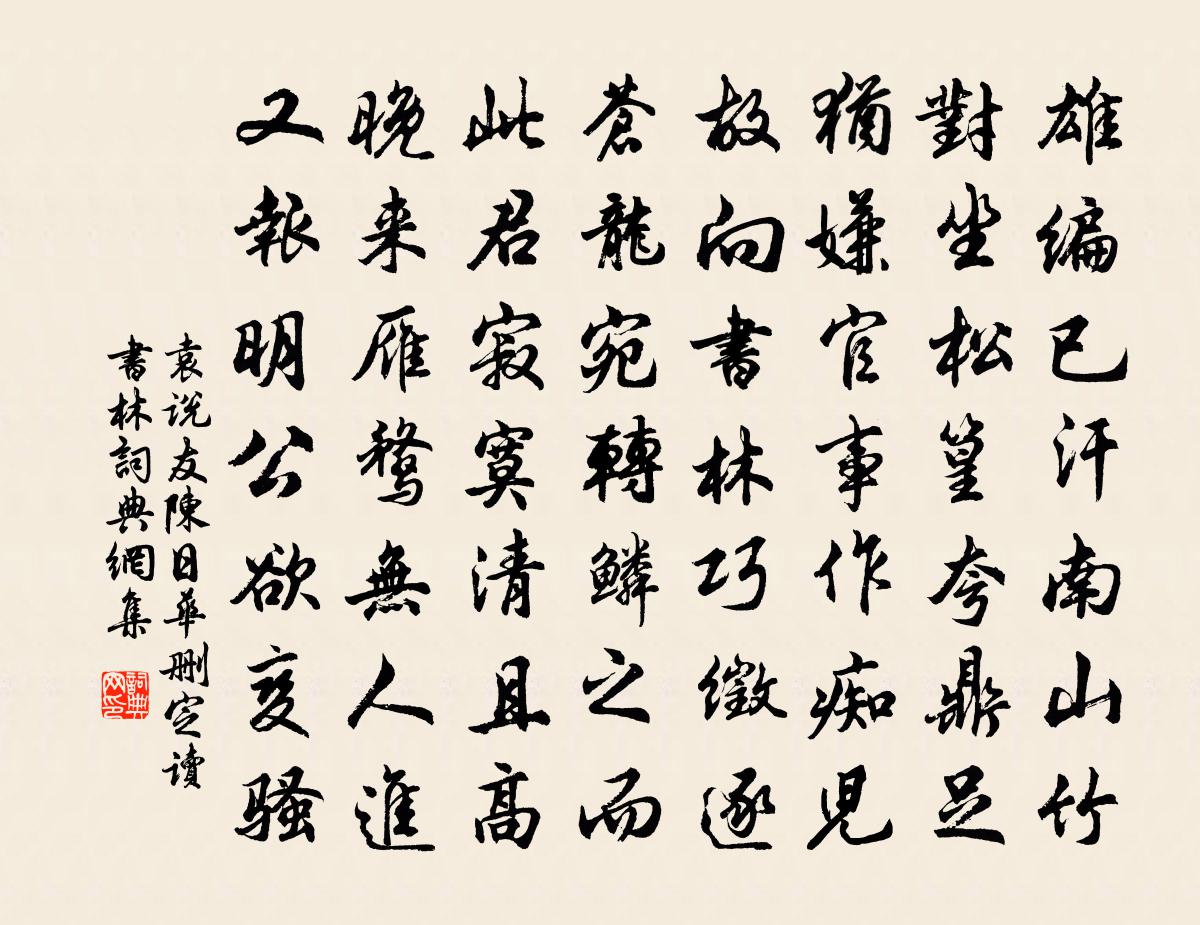 雄编已汗南山竹
對坐松篁夸鼎足
猶嫌官事作痴児
故向書林巧徵逐
蒼龍宛轉鱗之而
此君寂寞清且高
晚来雁鶩無人進
又報明公欲变騷
袁说友陳日華删定读
書林詞典網集
詞典網印